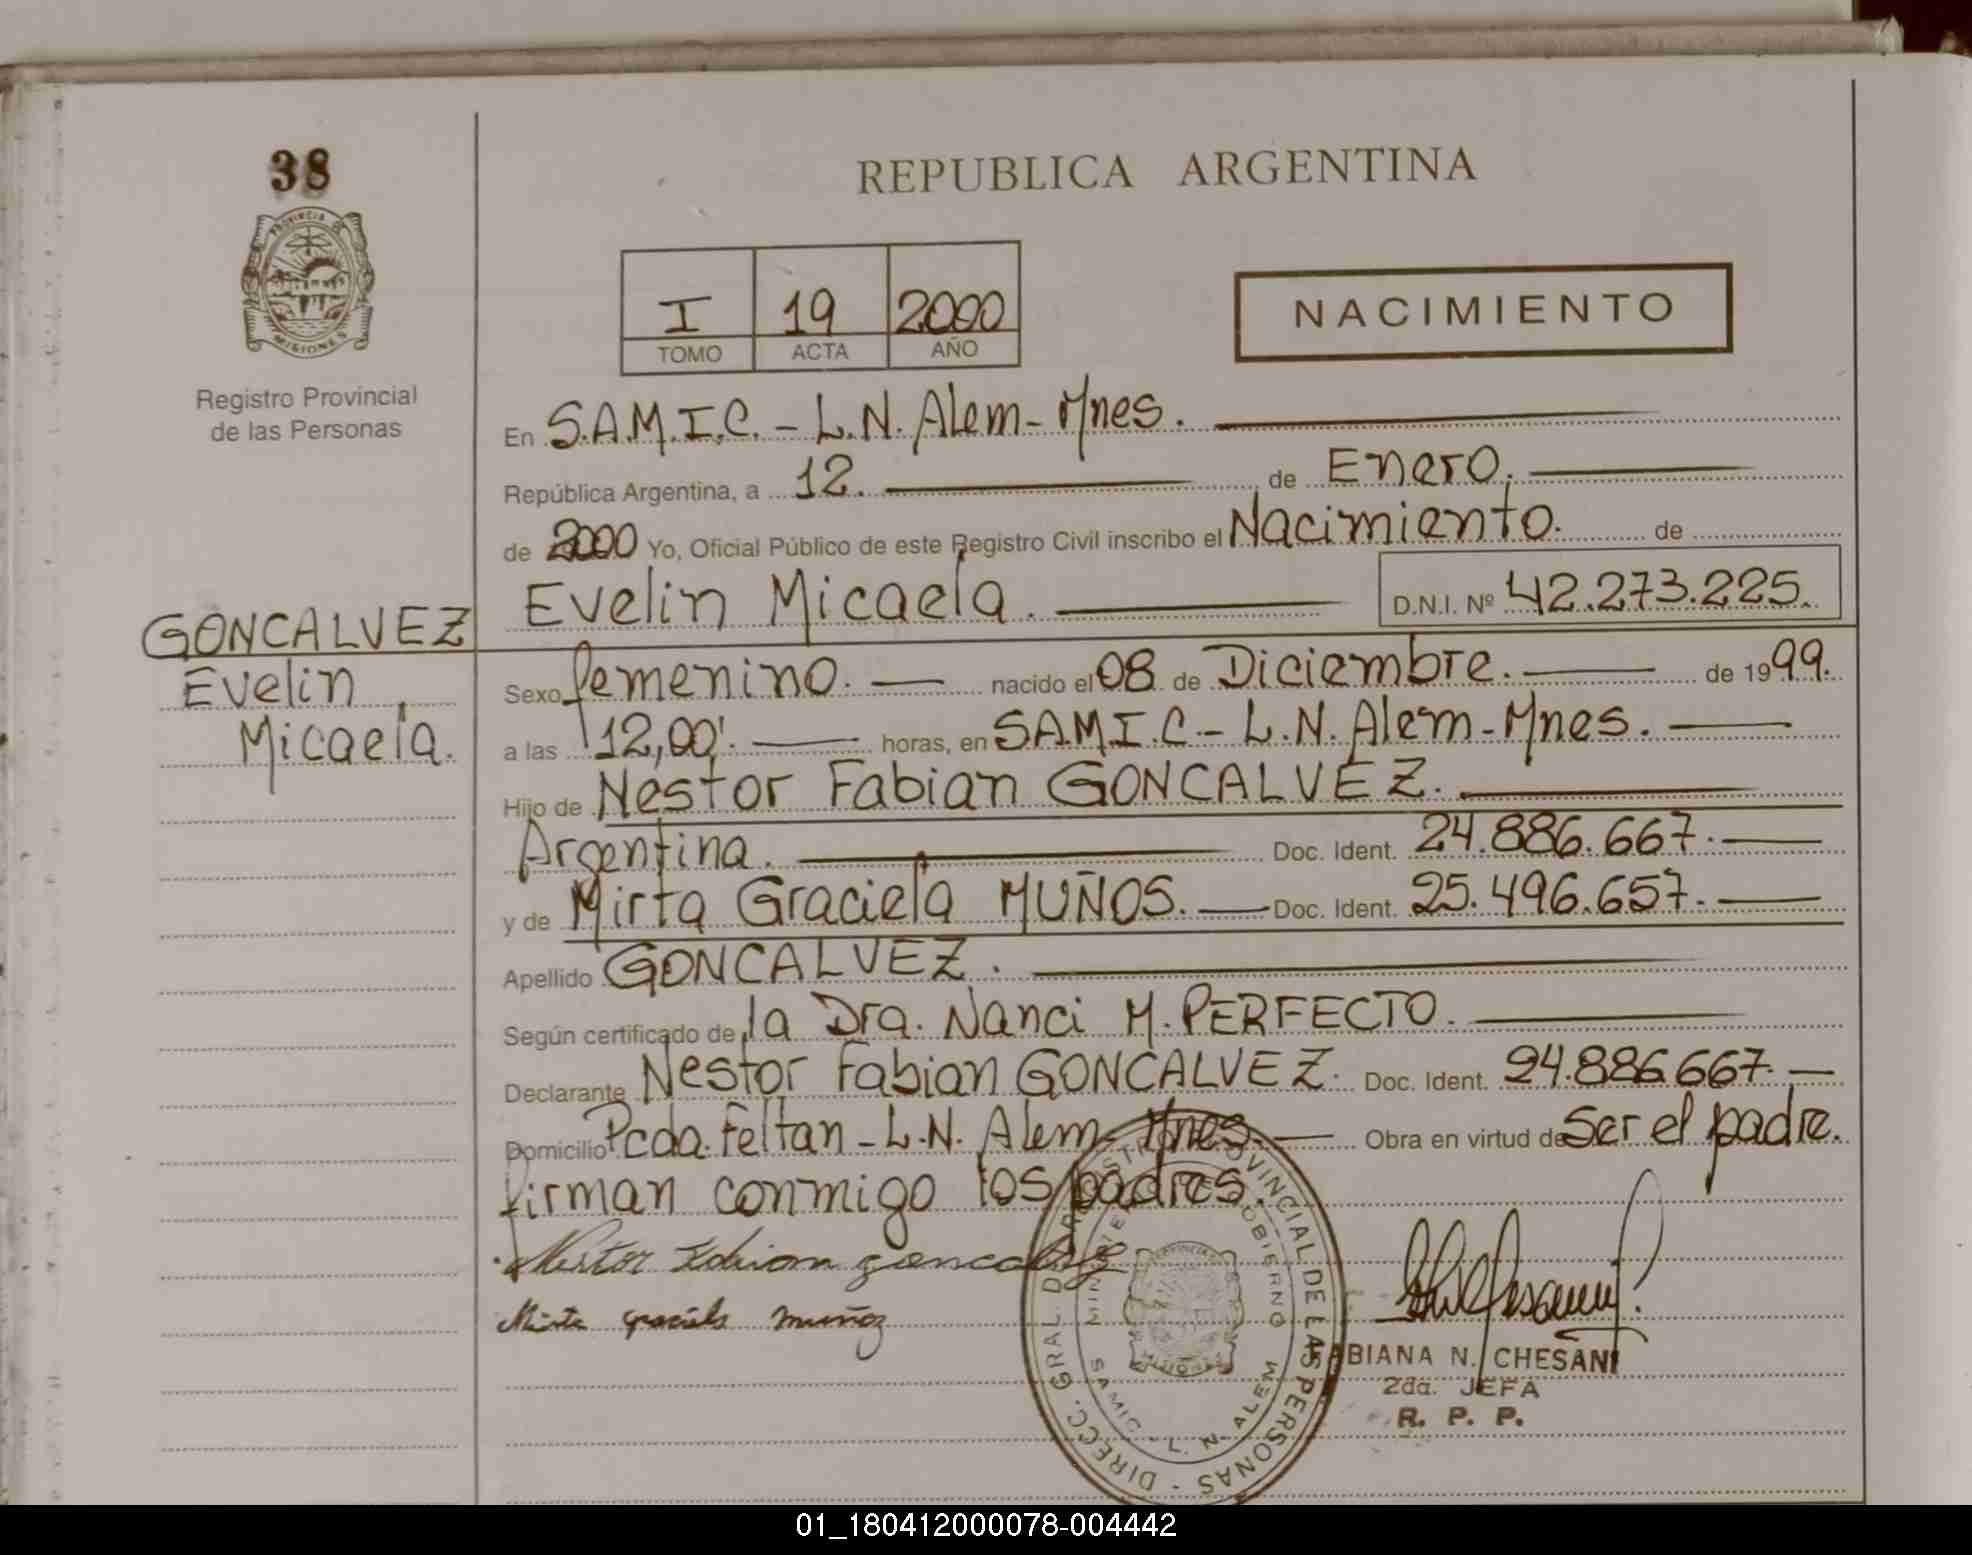 38
PROVINCIA DE
MISIONES
Registro Provincial
de las Personas
GONCALVEZ
Evelin
Micaela.
REPUBLICA ARGENTINA
I 19 2000
TOMO ACTA AÑO
NACIMIENTO
En S.A.M.I.C. - L.N. Alem - Mnes.
República Argentina, a 12. de Enero.
de 2000 Yo, Oficial Público de este Registro Civil inscribo el Nacimiento. de
Evelin Micaela. D.N.I. Nº 42.273.225.
Sexo femenino. nacido el 08 de Diciembre. de 1999.
a las 12,00'. horas, en S.A.M.I.C - L.N. Alem - Mnes.
Hijo de Nestor Fabian GONCALVEZ.
Argentina. Doc. Ident. 24.886.667.
y de Mirta Graciela MUÑOS. Doc. Ident. 25.496.657.
Apellido GONCALVEZ.
Según certificado de la Dra. Nanci M. PERFECTO.
Declarante Nestor Fabian GONCALVEZ. Doc. Ident. 24.886.667.
Domicilio Pcda. Feltan - L.N. Alem - Mnes. Obra en virtud de Ser el padre.
firman conmigo los padres.
Nestor Fabian goncalvez
Mirta graciela muñoz
DIRECC. GRAL. DE REGISTRO PROVINCIAL DE LAS PERSONAS
MINISTERIO DE GOBIERNO
SAMIC - L. N. ALEM
MISIONES
FABIANA N. CHESANI
2da. JEFA
R. P. P.
01_180412000078-004442